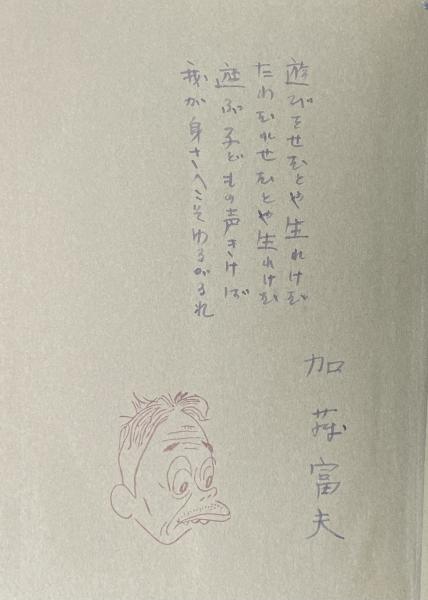 遊びをせむとや生れけむ
たわむれせむとや生れけむ
遊ぶ子どもの声きけば
我が身さへこそゆるがるれ
加藤富夫